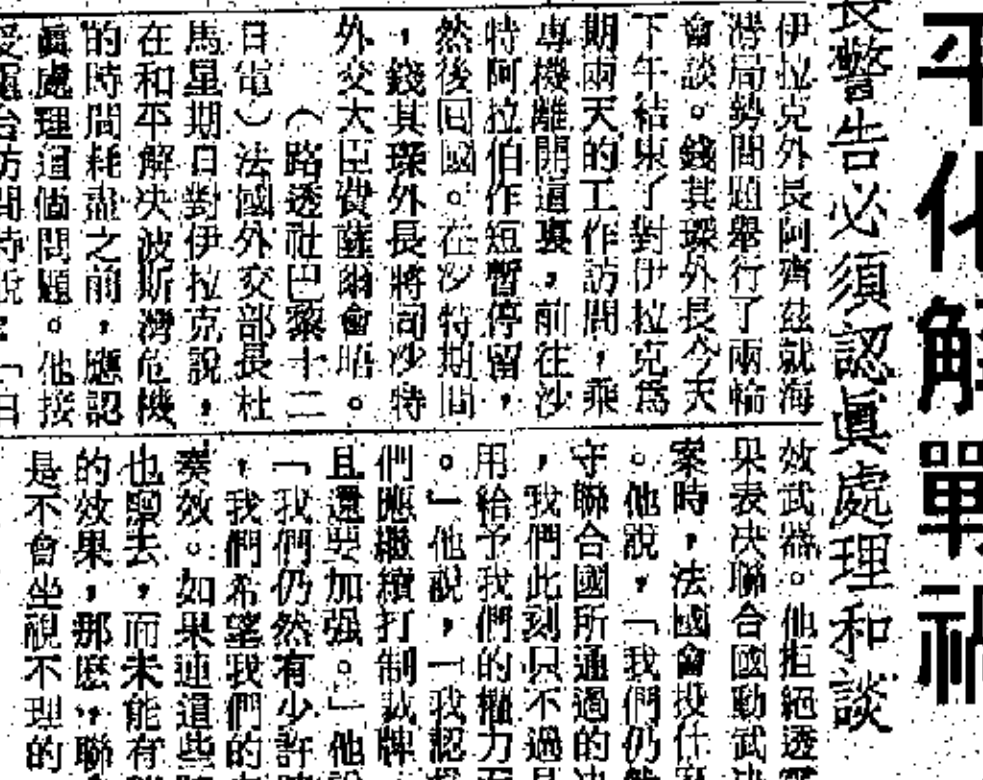 平化解戰禍
長警告必須認眞處理和談
伊拉克外長阿齊茲就海
灣局勢問題舉行了兩輪
會談。錢其琛外長今天
下午結束了對伊拉克爲
期兩天的工作訪問，乘
專機離開這裏，前往沙
特阿拉伯作短暫停留，
然後回國。在沙特期間
，錢其琛外長將同沙特
外交大臣費薩爾會晤。
（路透社巴黎十二
日電）法國外交部長杜
馬星期日對伊拉克說，
在和平解決波斯灣危機
的時間耗盡之前，應認
眞處理這個問題。他接
受電台訪問時說：「自
效武器。他拒絕透露
果表決聯合國動武決
案時，法國會投什麼
。他說，「我們仍然
守聯合國所通過的決
，我們此刻只不過是
用給予我們的權力而
。」他說，「我認爲
們應繼續打制裁牌
且還要加强。」他說
「我們仍然有少許時
，我們希望我們的
奏效。如果連這些
也驟去，而未能有
的效果，那麽，聯
是不會坐視不理的